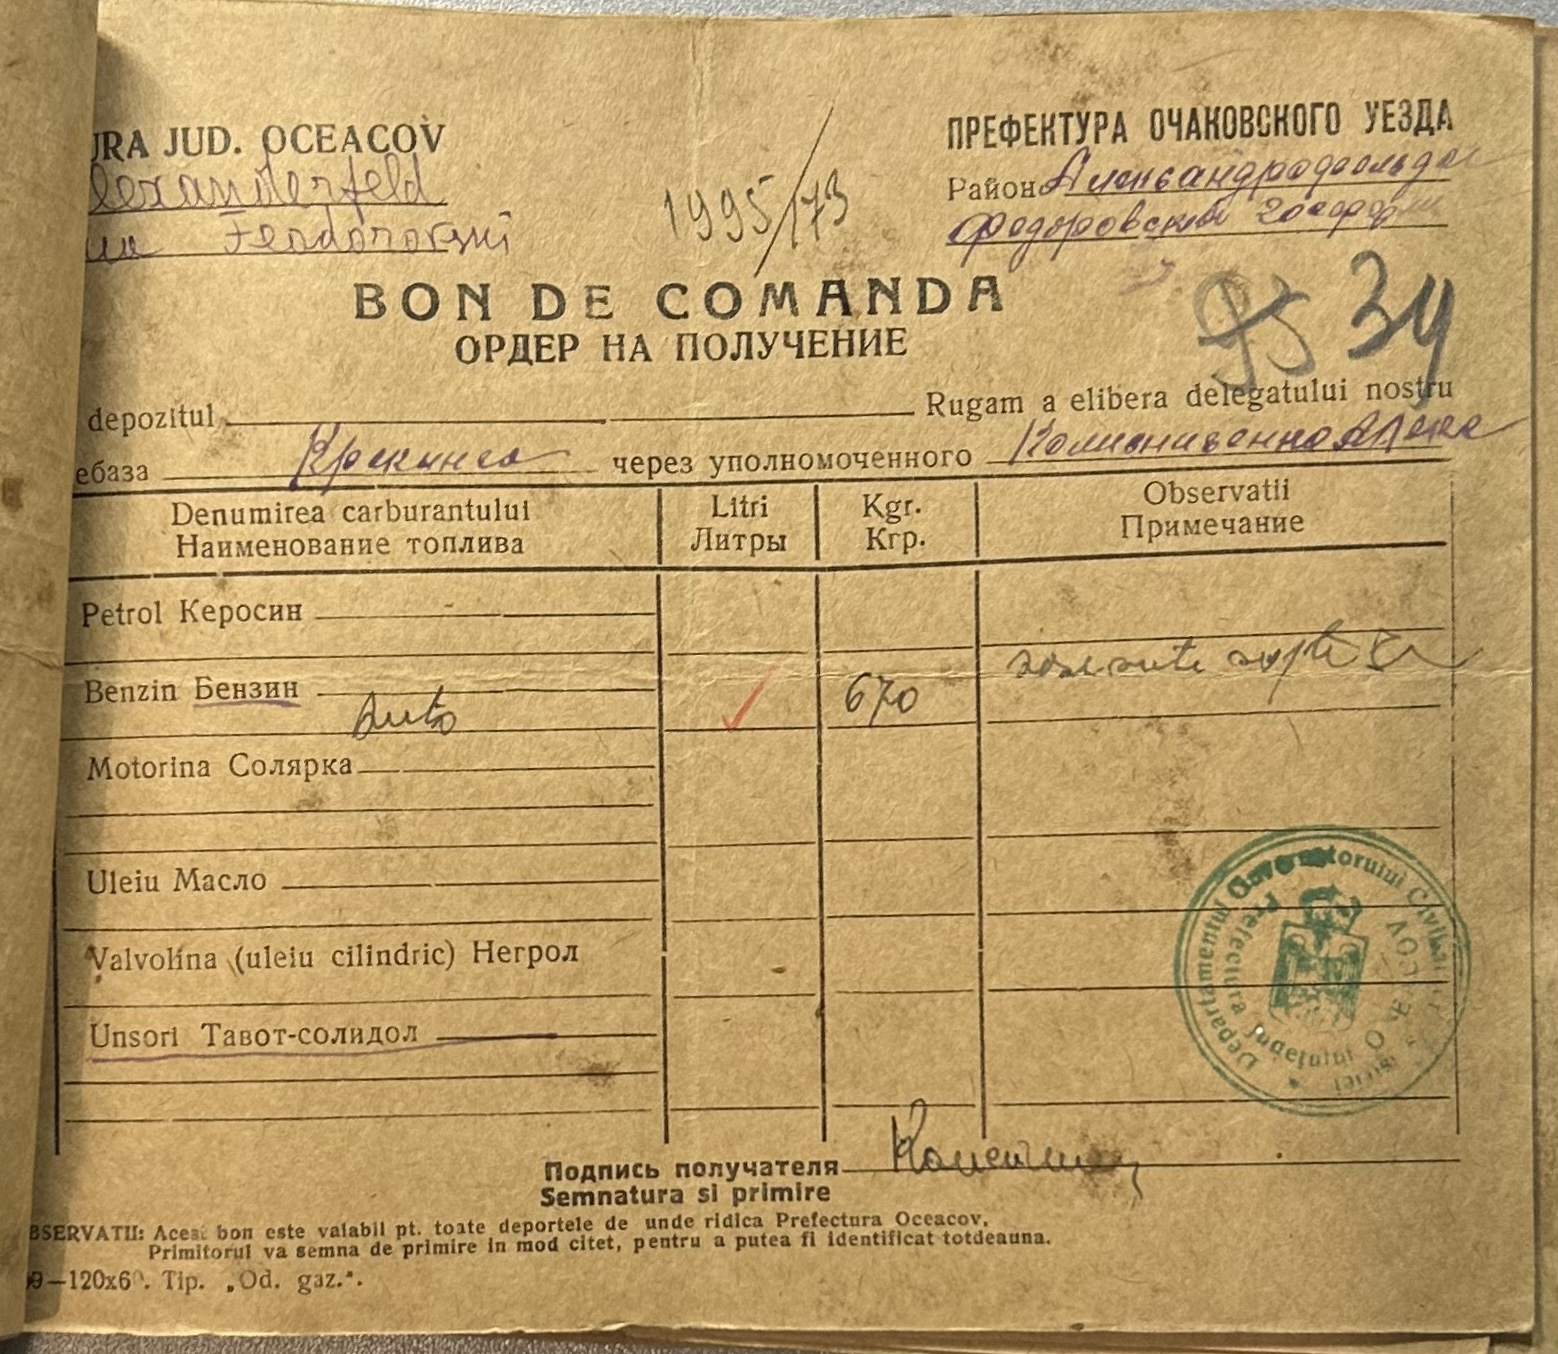 URA JUD. OCEACOV
ПРЕФЕКТУРА ОЧАКОВСКОГО УЕЗДА
lexanderfeld
Район Александрофельд
Feodorovski
Федоровский
1995/73
BON DE COMANDA
ОРДЕР НА ПОЛУЧЕНИЕ
95 34
depozitul Rugam a elibera delegatului nostru
ебаза Крекинга через уполномоченного
Denumirea carburantului Litri Kgr. Observatii
Наименование топлива Литры Кгр. Примечание
Petrol Керосин
Benzin Бензин
Auto 670
Motorina Солярка
Uleiu Масло
Valvolina (uleiu cilindric) Негрол
Unsori Тавот-солидол
Departamentul Guvernatorului Civil
Prefectura Judeţului OCEACOV
Подпись получателя
Semnatura si primire
BSERVATII: Acest bon este valabil pt. toate deportele de unde ridica Prefectura Oceacov.
Primitorul va semna de primire in mod citet, pentru a putea fi identificat totdeauna.
—120x6 . Tip. „Od. gaz.".